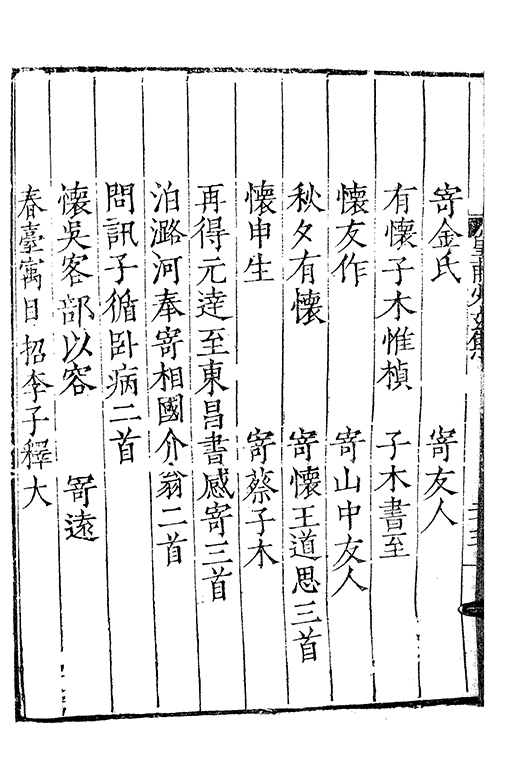 寄金氏　寄友人
有懷子木惟楨　子木書至
懷友作　寄山中友人
秋夕有懷　寄懷王道思三首
懷申生　寄蔡子木
再得元達至東昌書感寄三首
泊潞河奉寄相國介翁二首
問訊子循卧病二首
懷吳客部以容　寄遠
春臺寓目招李子釋大